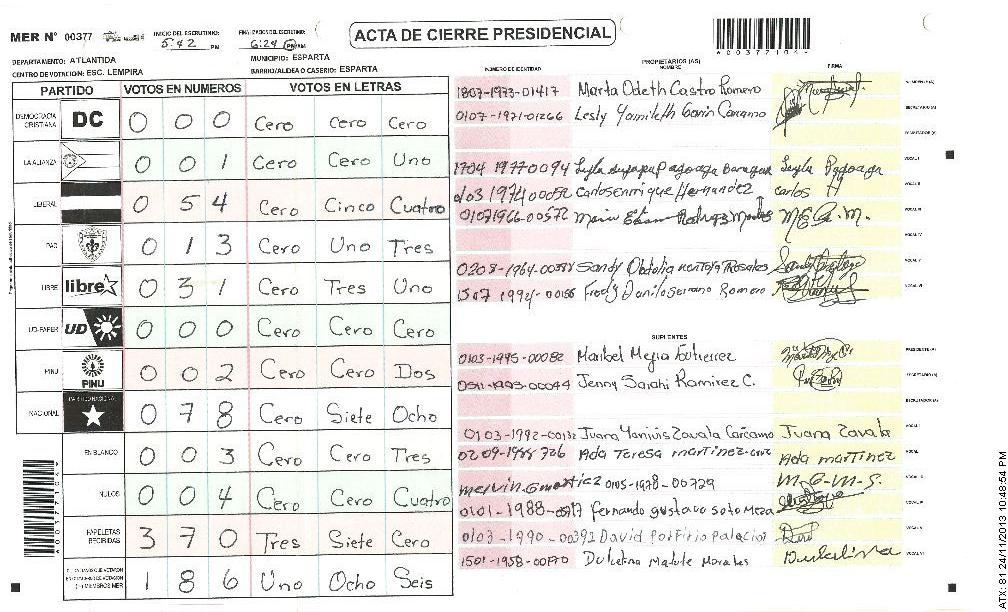 MER N° 00377
INICIO DEL ESCRUTINIO: 5:42 PM
FINALIZACION DEL ESCRUTINIO: 6:24 PM AM
ACTA DE CIERRE PRESIDENCIAL
A00377104
DEPARTAMENTO: ATLANTIDA
MUNICIPIO: ESPARTA
CENTRO DE VOTACION: ESC. LEMPIRA
BARRIO/ALDEA O CASERIO: ESPARTA
PARTIDO VOTOS EN NUMEROS VOTOS EN LETRAS
DEMOCRACIA CRISTIANA DC 0 0 0 Cero Cero Cero
LA ALIANZA 0 0 1 Cero Cero Uno
LIBERAL 0 5 4 Cero Cinco Cuatro
PAC 0 1 3 Cero Uno Tres
LIBRE libre 0 3 1 Cero Tres Uno
UD-FAPER UD 0 0 0 Cero Cero Cero
PINU PINU 0 0 2 Cero Cero Dos
NACIONAL PARTIDO NACIONAL 0 7 8 Cero Siete Ocho
EN BLANCO 0 0 3 Cero Cero Tres
NULOS 0 0 4 Cero Cero Cuatro
PAPELETAS RECIBIDAS 3 7 0 Tres Siete Cero
MIEMBROS MER 1 8 6 Uno Ocho Seis
A00377104
NUMERO DE IDENTIDAD PROPIETARIOS (AS) NOMBRE FIRMA
1807-1973-01417 Marta Odeth Castro Romero
0107-1971-01266 Lesly Yamileth
1704 1977 0094
0103 1974 00052 Carlos Enrique Hernandez Carlos H
01071966-00572
0208-1964- Sandy Obdulia Rosales
1507 1994- Fredy Danilo Romero
SUPLENTES
0103-1995-00082 Maribel Mejia Gutierrez
Jenny Sarahi Ramirez C.
0103-1992- Juana Zavala Carcamo Juana Zavala
0209-1988 726 Ada Teresa martinez Ada martinez
melvin 0105-1978-00729 M-G-M-S.
0101-1988- fernando gustavo soto Meza
0103-1990-00392 David Porfirio Palacios
1501-1958-00770 Dulcelina Matute Morales Dulcelina
ATX: 81 24/11/2013 10:48:54 PM